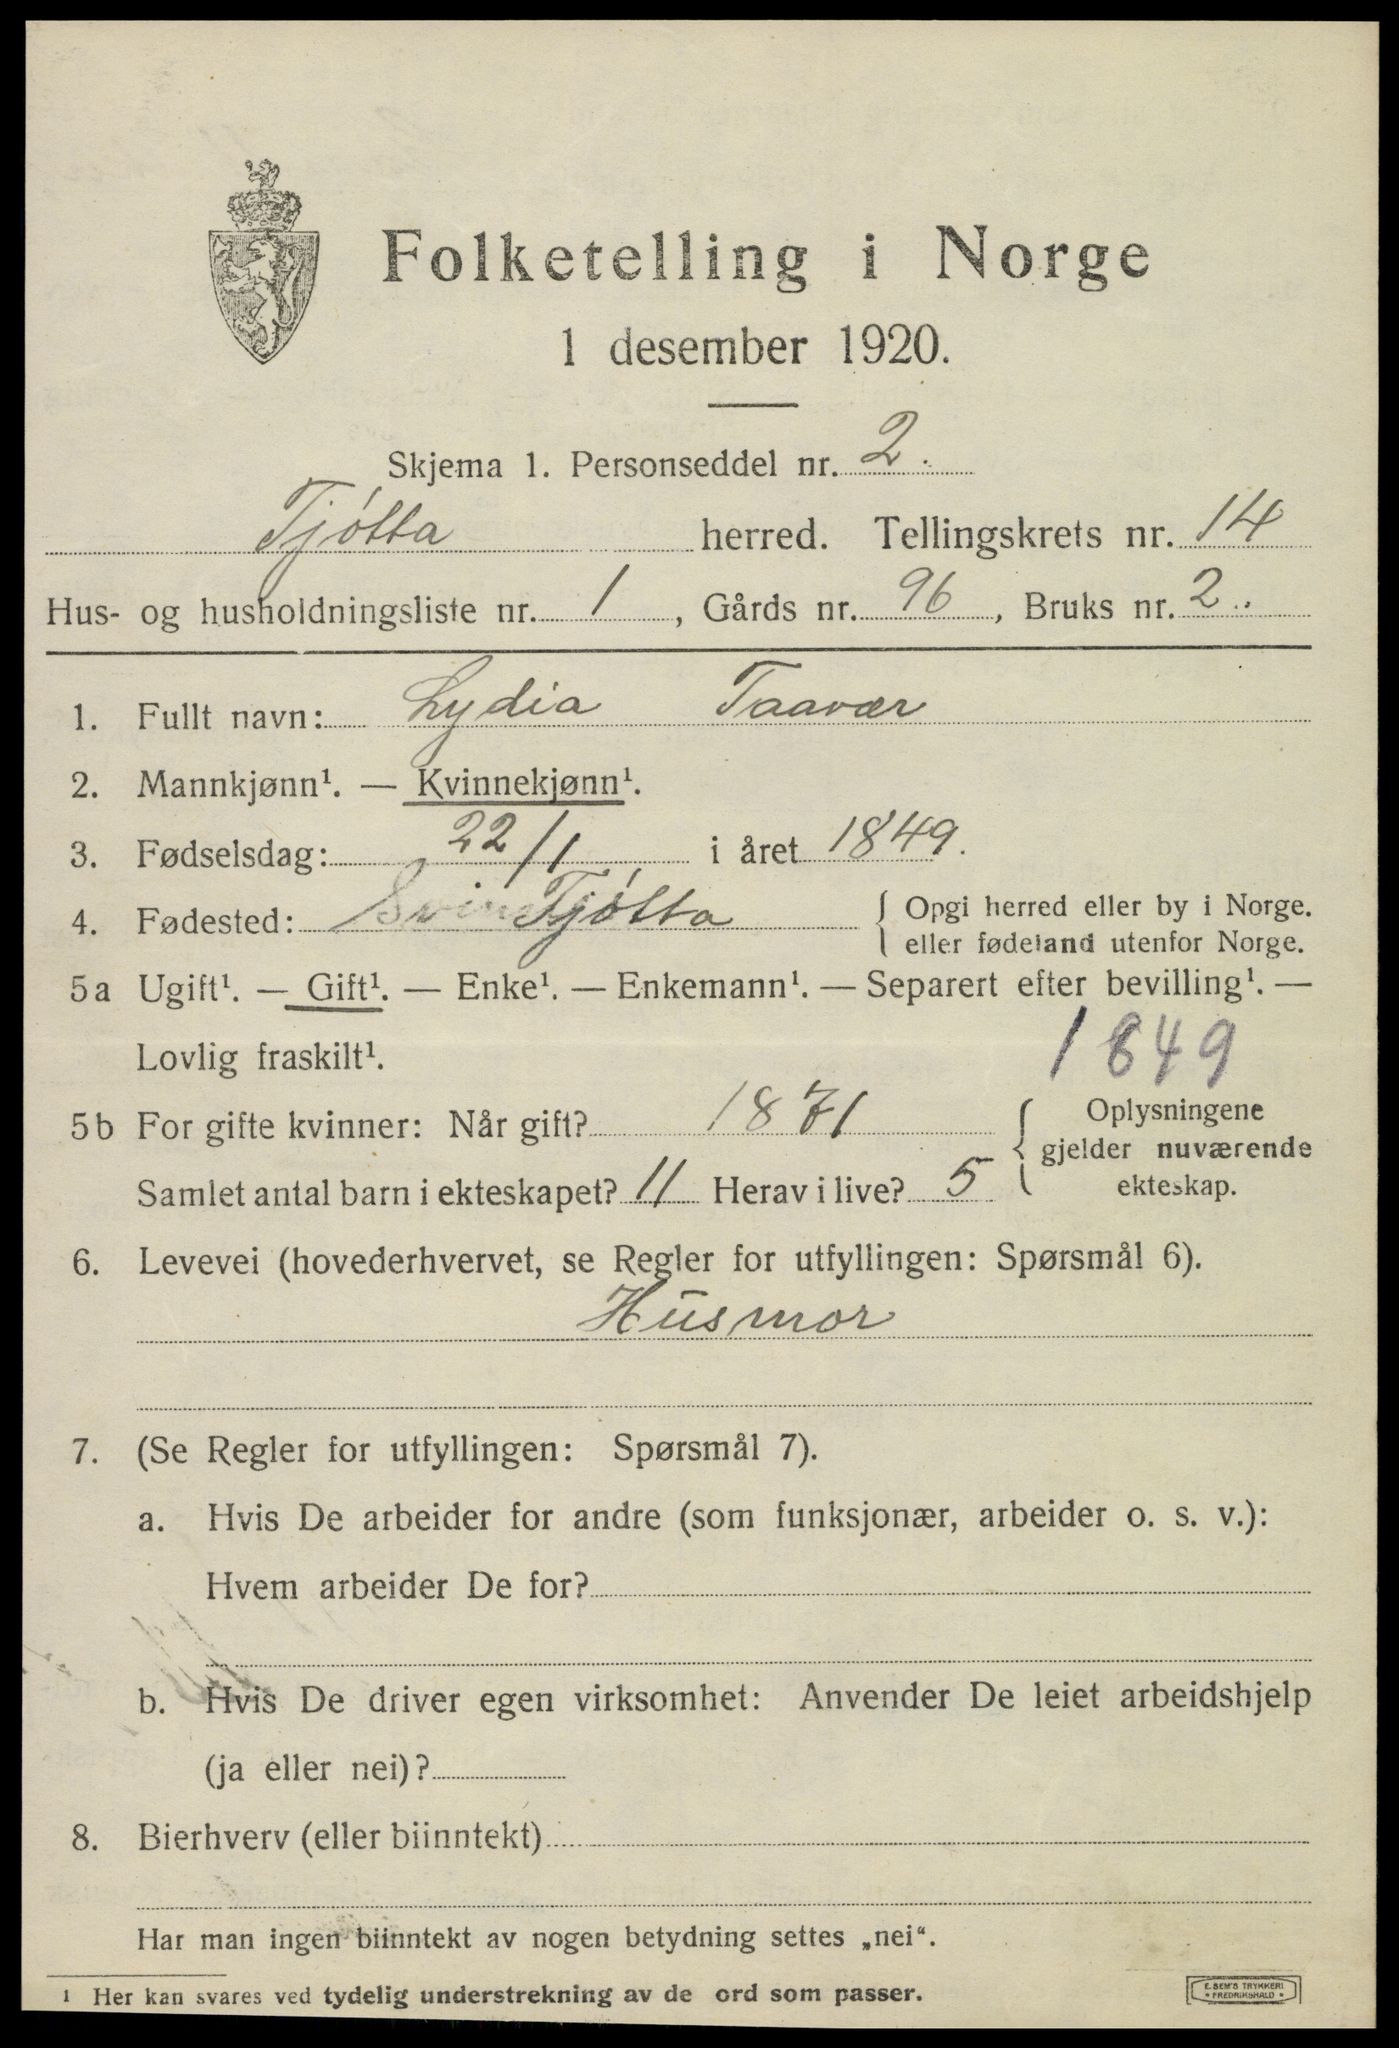 Folketelling i Norge
1 desember 1920.
Skjema 1. Personseddel nr. 2.
Tjótta herred. Tellingskrets nr. 14
Hus- og husholdningsliste nr. 1, Gårds nr. 96, Bruks nr. 2.
1. Fullt navn: Lydia Taavær
2. Mannkjønn¹. — Kvinnekjønn¹.
3. Fødselsdag: 22/1 i året 1849.
4. Fødested: Tjótta { Opgi herred eller by i Norge.
eller fødeland utenfor Norge.
5a Ugift¹. — Gift¹. — Enke¹. — Enkemann¹. — Separert efter bevilling¹. —
Lovlig fraskilt¹. 1849
5b For gifte kvinner: Når gift? 1871 { Oplysningene
gjelder nuværende
Samlet antal barn i ekteskapet? 11 Herav i live? 5 ekteskap.
6. Levevei (hovederhvervet, se Regler for utfyllingen: Spørsmål 6).
Husmor
7. (Se Regler for utfyllingen: Spørsmål 7).
a. Hvis De arbeider for andre (som funksjonær, arbeider o. s. v.):
Hvem arbeider De for?
b. Hvis De driver egen virksomhet: Anvender De leiet arbeidshjelp
(ja eller nei)?
8. Bierhverv (eller biinntekt)
Har man ingen biinntekt av nogen betydning settes „nei“.
1 Her kan svares ved tydelig understrekning av de ord som passer.
E. SEM'S TRYKKERI
• FREDRIKSHALD •